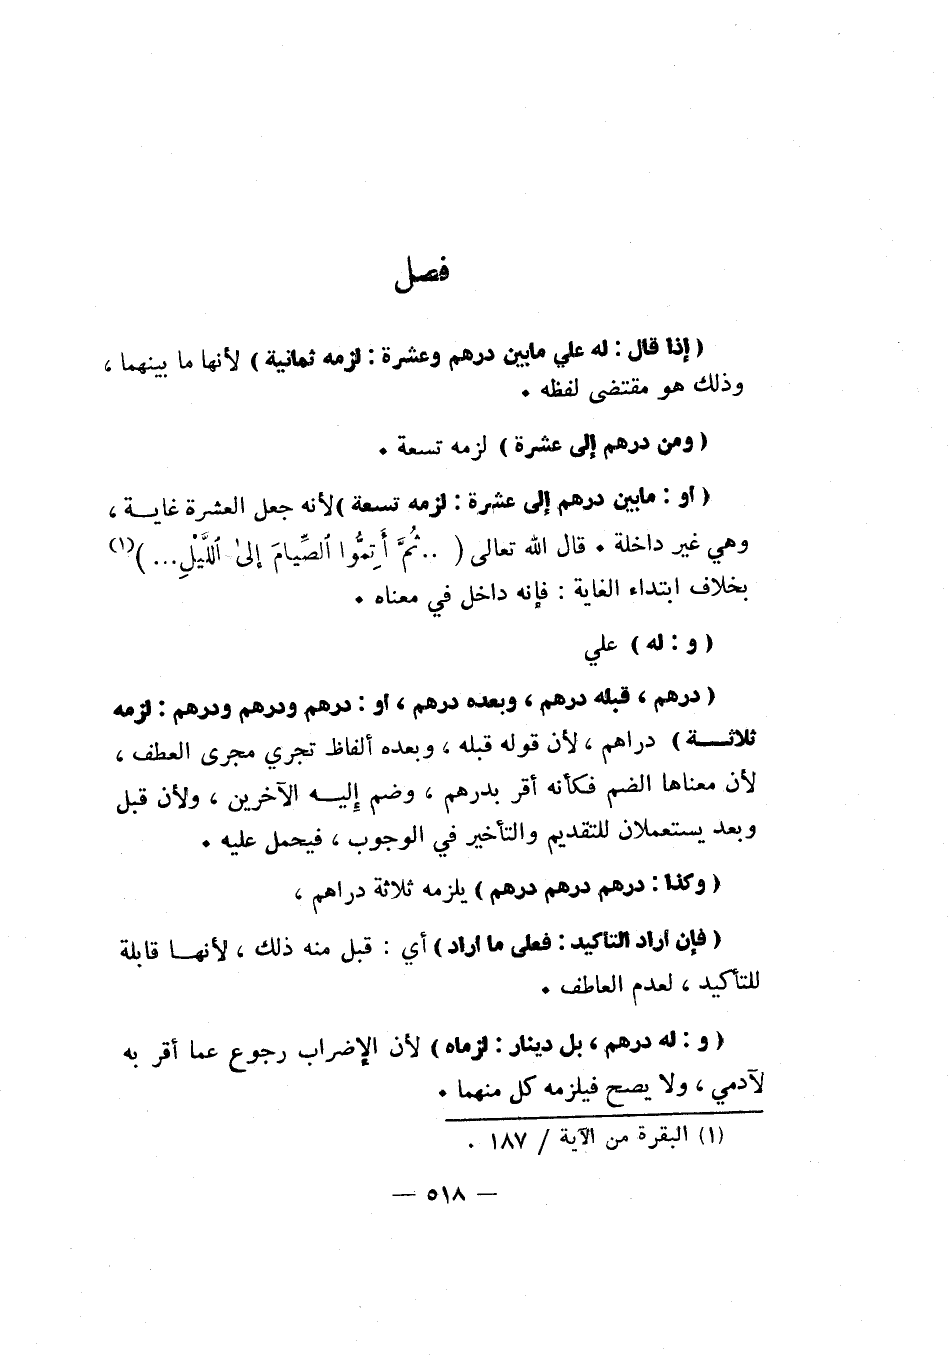 فصل
( إذا قال : له علي مابين درهم وعشرة : لزمه ثمانية ) لأنها ما بينهما ،
وذلك هو مقتضى لفظه .
( ومن درهم إلى عشرة ) لزمه تسعة .
( او : مابين درهم إلى عشرة : لزمه تسعة ) لأنه جعل العشرة غايـــة ،
وهي غير داخلة . قال الله تعالى ( .. ثُمَّ أَتِمُّوا ٱلصِّيامَ إلىٰ ٱللَّيْلِ... )(١)
بخلاف ابتداء الغاية : فإنه داخل في معناه .
( و : له ) علي
( درهم ، قبله درهم ، وبعده درهم ، او : درهم ودرهم ودرهم : لزمه
ثلاثـــة ) دراهم ، لأن قوله قبله ، وبعده ألفاظ تجري مجرى العطف ،
لأن معناها الضم فكأنه أقر بدرهم ، وضم إليـــه الآخرين ، ولأن قبل
وبعد يستعملان للتقديم والتأخير في الوجوب ، فيحمل عليه .
( وكذا : درهم درهم درهم ) يلزمه ثلاثة دراهم ،
( فإن أراد التأكيد : فعلى ما اراد ) أي : قبل منه ذلك ، لأنهـــا قابلة
للتأكيد ، لعدم العاطف .
( و : له درهم ، بل دينار : لزماه ) لأن الإضراب رجوع عما أقر به
لآدمي ، ولا يصح فيلزمه كل منهما .
(١) البقرة من الآية / ١٨٧ .
— ٥١٨ —